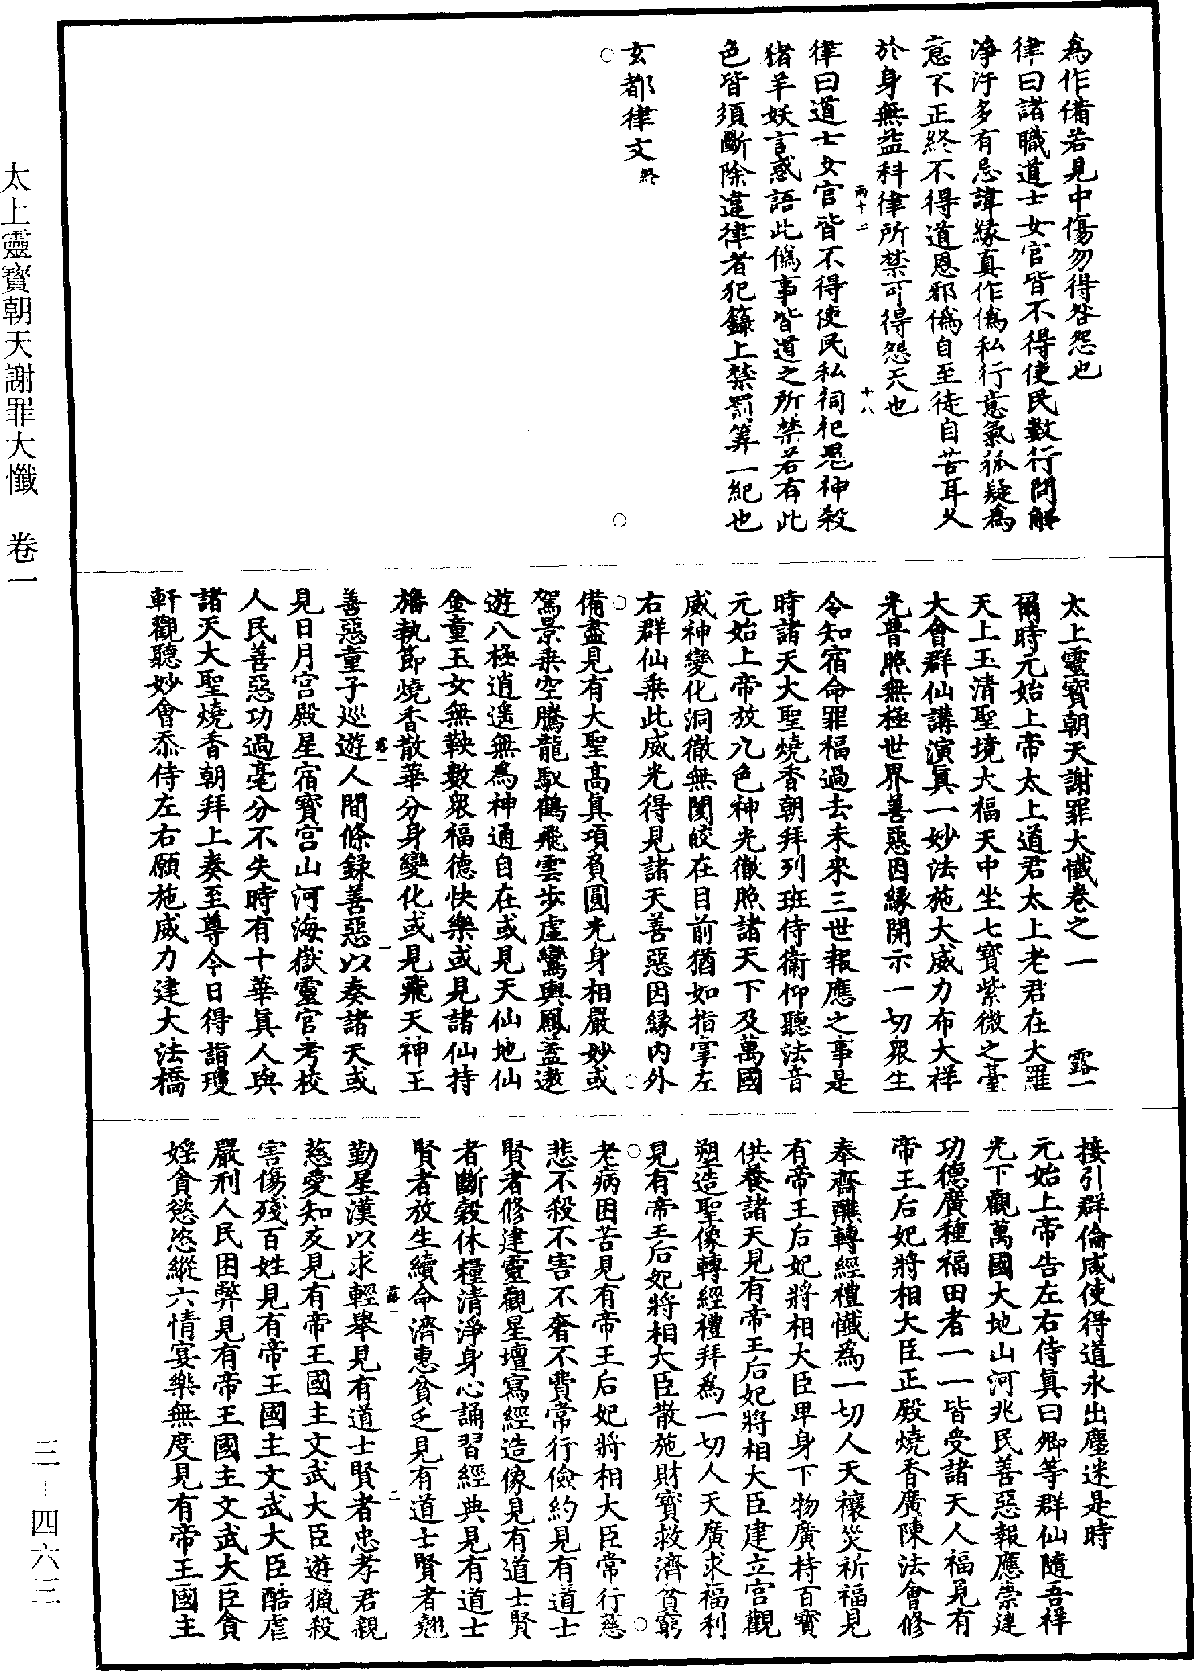 為作備若見中傷勿得咎怨也
律曰諸職道士女官皆不得使民數行問解
淨汙多有忌諱緣真作偽私行意氣狐疑為
意不正終不得道恩邪偽自至徒自苦耳久
於身無益科律所禁可得怨天也
律曰道士女官皆不得使民私祠祀鬼神殺
猪羊妖言惑語此偽事皆道之所禁若有此
色皆須斷除違律者犯籙上禁罰筭一紀也
玄都律文終
太上靈寶朝天謝罪大懺卷之一 露一
爾時元始上帝太上道君太上老君在大羅
天上玉清聖境大福天中坐七寶紫微之臺
大會群仙講演真一妙法施大威力布大祥
光普照無極世界善惡因緣開示一切眾生
令知宿命罪福過去未來三世報應之事是
時諸天大聖燒香朝拜列班侍衛仰聽法音
元始上帝放九色神光徹照諸天下及萬國
威神變化洞徹無閡皎在目前猶如指掌左
右群仙乘此威光得見諸天善惡因緣內外
備盡見有大聖高真項負圓光身相嚴妙或
駕景乘空騰龍馭鶴飛雲步虛鸞輿鳳蓋遨
遊八極逍遙無為神通自在或見天仙地仙
金童玉女無鞅數眾福德快樂或見諸仙持
旛執節燒香散華分身變化或見飛天神王
善惡童子巡遊人間條錄善惡以奏諸天或
見日月宮殿星宿寶宮山河海嶽靈官考校
人民善惡功過毫分不失時有十華真人與
諸天大聖燒香朝拜上奏至尊今日得詣瓊
軒觀聽妙會忝侍左右願施威力建大法橋
接引群倫咸使得道永出塵迷是時
元始上帝告左右侍真曰卿等群仙隨吾祥
光下觀萬國大地山河兆民善惡報應崇建
功德廣種福田者一一皆受諸天人福見有
帝王后妃將相大臣正殿燒香廣陳法會修
奉齋醮轉經禮懺為一切人天禳災祈福見
有帝王后妃將相大臣卑身下物廣持百寶
供養諸天見有帝王后妃將相大臣建立宮觀
塑造聖像轉經禮拜為一切人天廣求福利
見有帝王后妃將相大臣散施財寶救濟貧窮
老病困苦見有帝王后妃將相大臣常行慈
悲不殺不害不奢不費常行儉約見有道士
賢者修建靈觀星壇寫經造像見有道士賢
者斷穀休糧清淨身心誦習經典見有道士
賢者放生續命濟惠貧乏見有道士賢者翹
勤星漢以求輕舉見有道士賢者忠孝君親
慈愛知友見有帝王國主文武大臣遊獵殺
害傷殘百姓見有帝王國主文武大臣酷虐
嚴刑人民困弊見有帝王國主文武大臣貪
婬貪慾恣縱六情宴樂無度見有帝王國主
太上靈寶朝天謝罪大懺 卷一
三-四六三